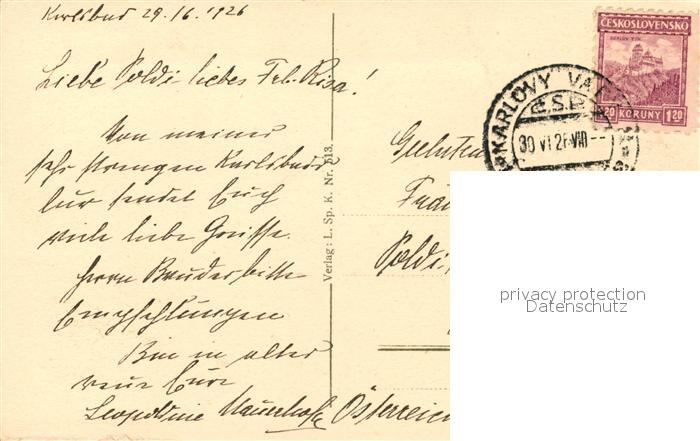 Karlsbad 29./6. 1926
Liebe Poldi liebes Frl. Risa!
Von meiner
sehr strengen Karlsbader
kur sendet Euch
viele liebe Grüsse.
Herrn Bruder bitte
Empfehlungen
Bin in alter
Treue Eure
Leopoldine
Verlag: L. Sp. K. Nr. 513.
ČESKOSLOVENSKO
KARLŮV TÝN
1·20 KORUNY 1·20
KARLOVY VARY
Č.S.P.
30 VI 26
Fräu
Poldi
Österreich
privacy protection
Datenschutz